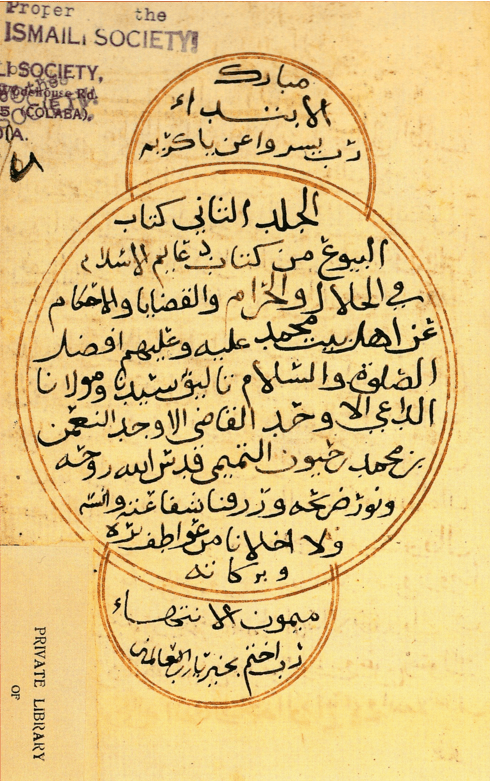 Proper the
ISMAILI SOCIETY
SOCIETY,
Rd.
5 (COLABA).
مبارك
الابتداء
رب يسر واعن يا كريم
الجلد الثاني كتاب
البيوع من كتاب دعايم الاسلام
في الحلال والحرام والقضايا والاحكام
عن اهل بيت محمد عليه وعليهم افضل
الصلوة والسلام تاليف سيدنا ومولانا
الداعي الاوحد القاضي الاوجد النعمن
بن محمد بن حيون التميمي قدس الله روحه
ونور ضريحه ورزقنا شفاعته وانسه
ولا اخلانا من عواطف بره
وبركاته
ميمون الانتهاء
رب اختم بخير يا رب العالمين
PRIVATE LIBRARY
OF